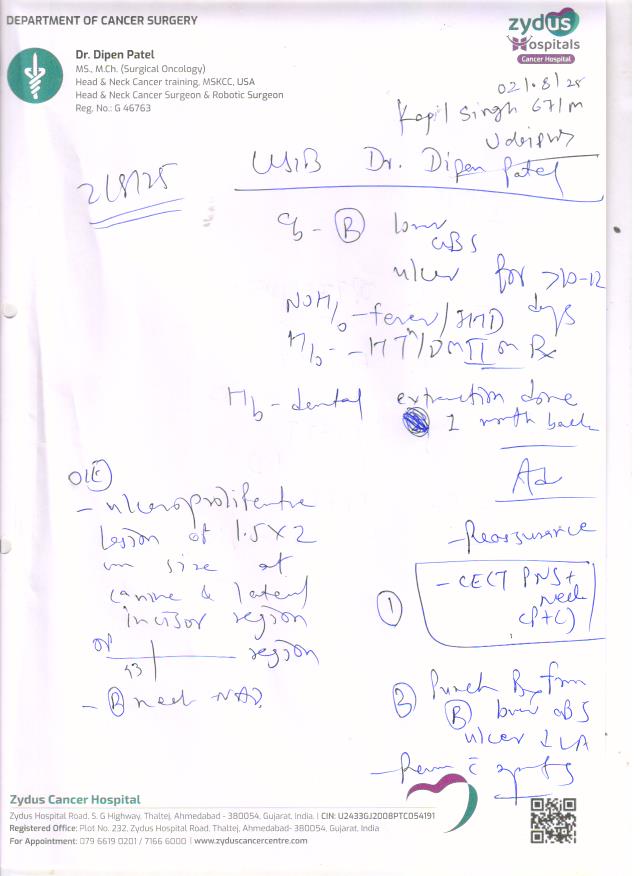 DEPARTMENT OF CANCER SURGERY
zydus
Hospitals
Cancer Hospital
Dr. Dipen Patel
MS., M.Ch. (Surgical Oncology)
Head & Neck Cancer training, MSKCC, USA
Head & Neck Cancer Surgeon & Robotic Surgeon
Reg. No.: G 46763
02/8/25
Kapil Singh 67/M
Udaipur
2/8/25
Dr. Dipen Patel
c/o - (R) lower
GBS
ulcer for >10-12
days
No H/o - fever/
H/o - HT/DM II on Rx
H/o - dental extraction done
1 month back
O/E
- ulceroproliferative
lesion of 1.5 x 2
cm size at
canine & lateral
incisor region
of
43 region
- (B) neck NAD.
Ad
- Reassurance
① - CECT PNS +
neck
(P+C)
② Punch Bx from
(R) lower GBS
ulcer ↓ LA
- Review c̄ reports
Zydus Cancer Hospital
Zydus Hospital Road, S. G Highway, Thaltej, Ahmedabad - 380054, Gujarat, India. | CIN: U2433GJ2008PTC054191
Registered Office: Plot No. 232, Zydus Hospital Road, Thaltej, Ahmedabad- 380054, Gujarat, India
For Appointment: 079 6619 0201 / 7166 6000 | www.zyduscancercentre.com